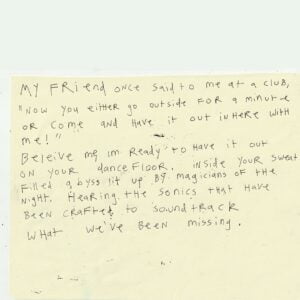 MY FRIEND ONCE SAID TO ME AT A CLUB,
"NOW YOU EITHER GO OUTSIDE FOR A MINUTE
OR COME AND HAVE IT OUT IN HERE WITH
ME!"
BELEIVE ME, IM READY TO HAVE IT OUT
ON YOUR DANCEFLOOR. INSIDE YOUR SWEAT
FILLED ABYSS LIT UP BY MAGICIANS OF THE
NIGHT. HEARING THE SONICS THAT HAVE
BEEN CRAFTED TO SOUNDTRACK
WHAT WE'VE BEEN MISSING.